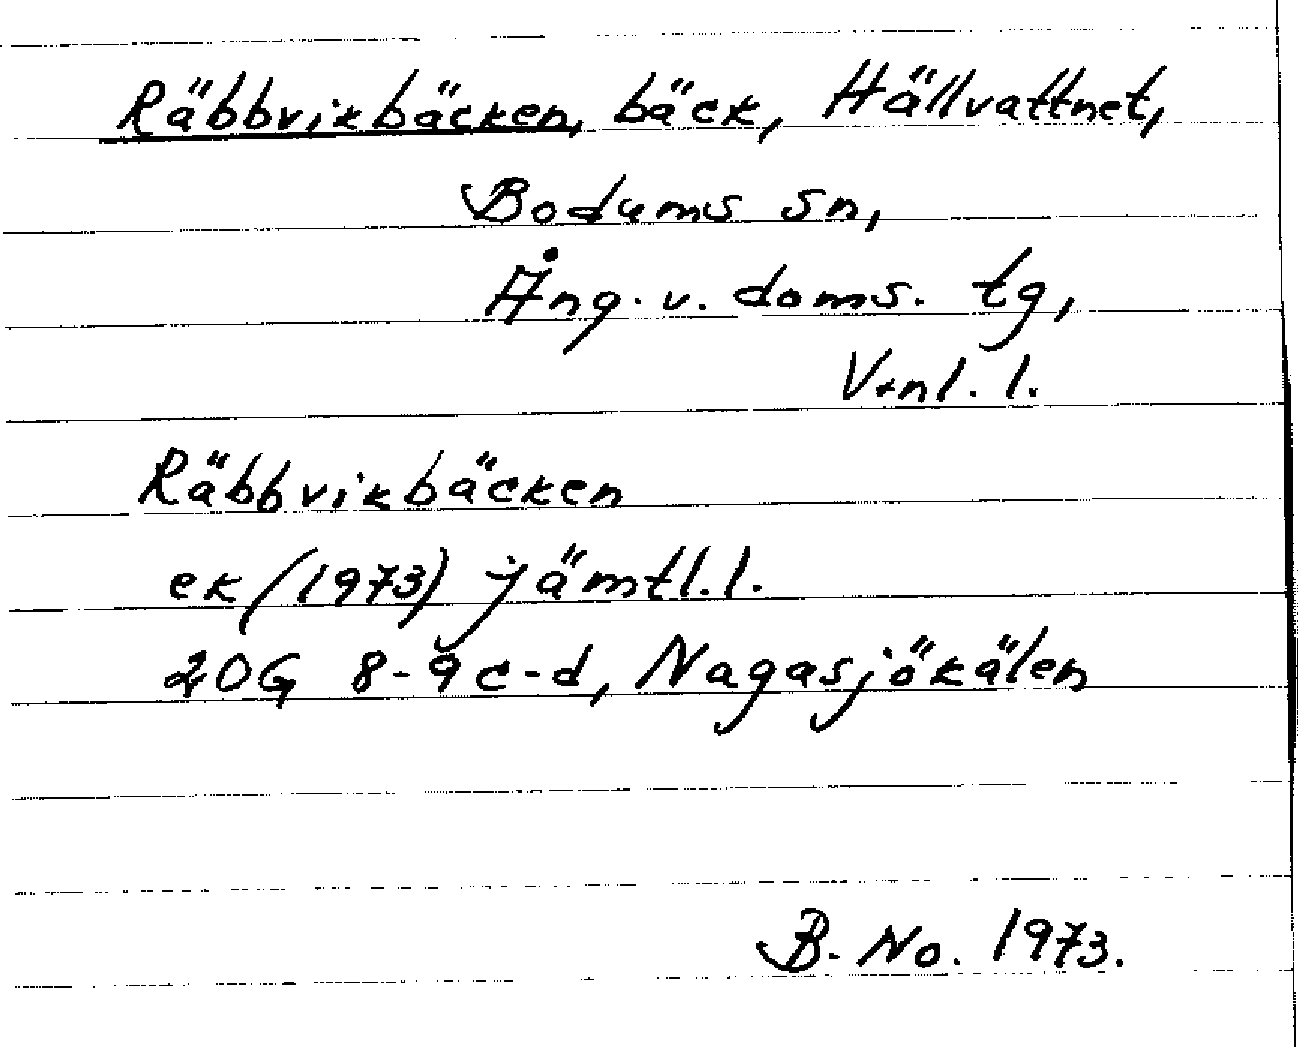 Räbbvikbäcken, bäck, Hällvattnet,
Bodums sn,
Ång. v. doms. tg,
V-nl. l.
Räbbvikbäcken
ek (1973) jämtl. l.
20G 8-9 c-d, Nagasjökälen
B. No. 1973.